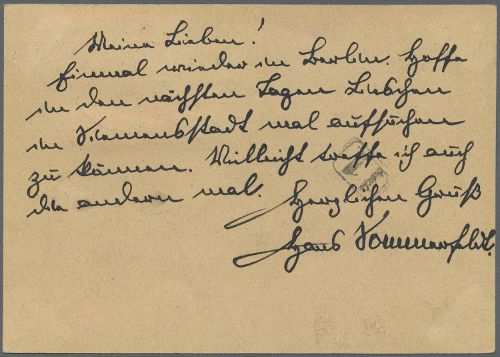 Meine Lieben!
Einmal wieder in Berlin. Hoffe
in den nächsten Tagen Lieschen
in Siemensstadt mal aufsuchen
zu können. Vielleicht treffe ich auch
die andern mal.
Herzlichen Gruß
Hans Sommerfeldt.